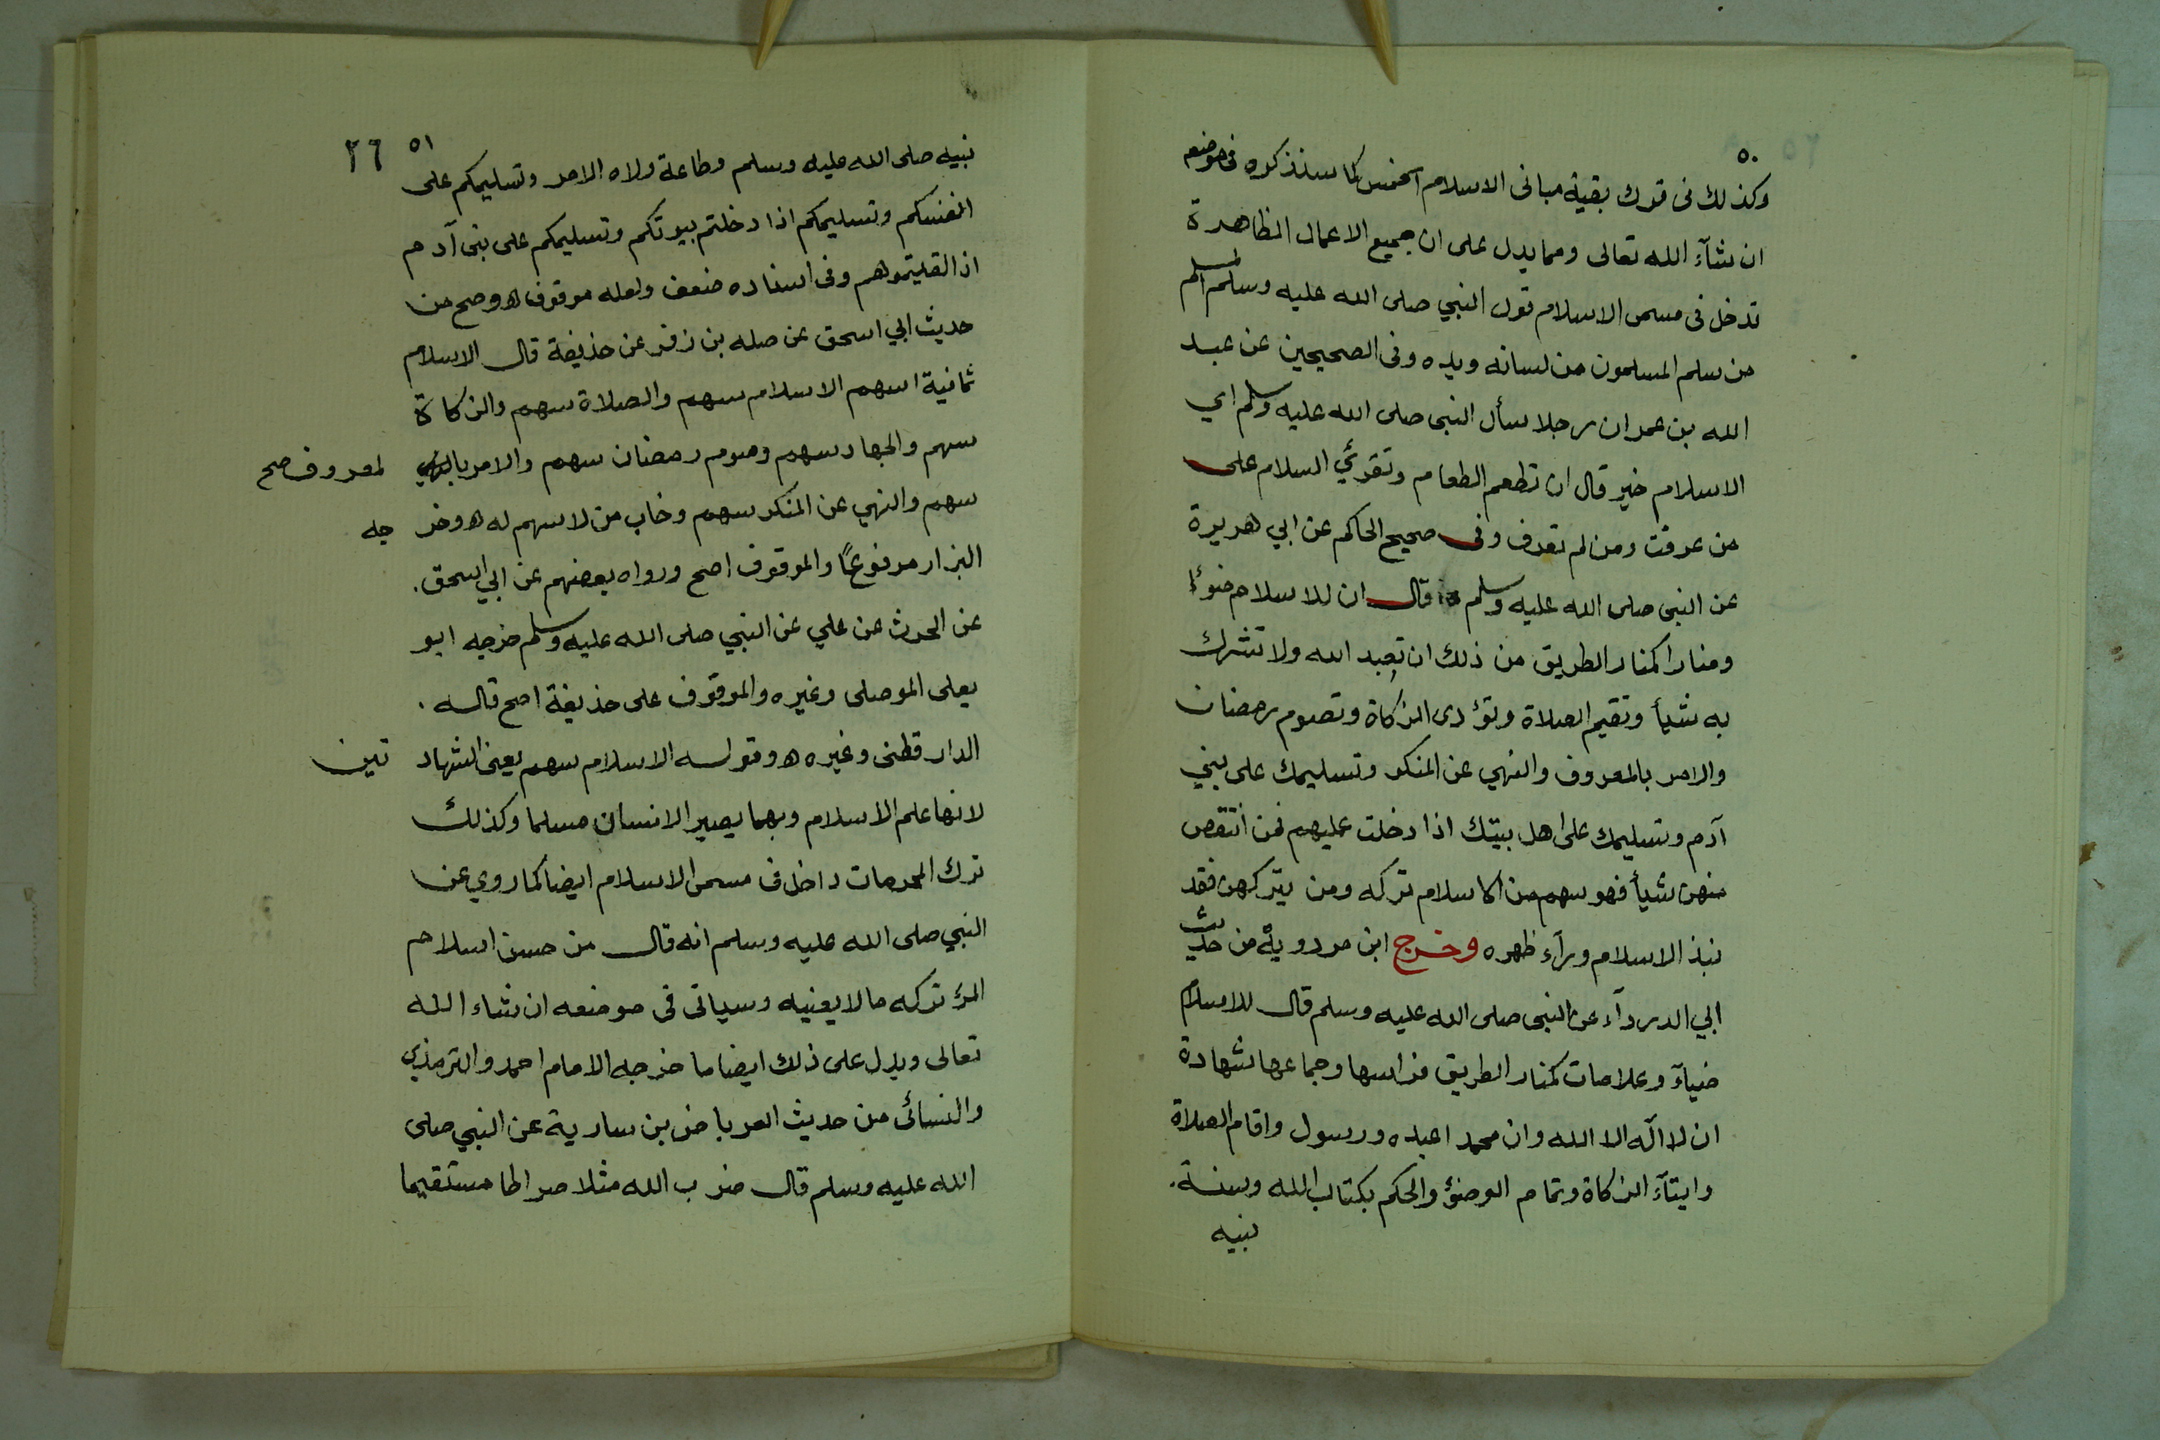 ٥٠
وكذلك فى قوله بقية مبانى الاسلام الخمس كما سنذكره فى موضعه
ان شآء الله تعالى ومما يدل على ان جميع الاعمال الظاهرة
تدخل فى مسمى الاسلام قول النبي صلى الله عليه وسلم المسلم
من سلم المسلمون من لسانه ويده وفى الصحيحين عن عبد
الله بن عمر ان رجلا سأل النبى صلى الله عليه وسلم اي
الاسلام خير قال ان تطعم الطعام وتقرئ السلام على
من عرفت ومن لم تعرف وفى صحيح الحاكم عن ابي هريرة
عن النبى صلى الله عليه وسلم قال ان للاسلام ضوءا
ومنارا كمنار الطريق من ذلك ان تعبد الله ولا تشرك
به شيأ وتقيم الصلاة وتؤدى الزكاة وتصوم رمضان
والامر بالمعروف والنهي عن المنكر وتسليمك على بني
آدم وتسليمك على اهل بيتك اذا دخلت عليهم فمن انتقص
منهن شيأ فهو سهم من الاسلام تركه ومن يتركهن فقد
نبذ الاسلام ورآء ظهره وخرج ابن مردويه من حديث
ابي الدردآء عن النبى صلى الله عليه وسلم قال للاسلام
ضيآء وعلامات كمنار الطريق فراسها وجماعها شهادة
ان لا اله الا الله وان محمدا عبده ورسول واقام الصلاة
وايتآء الزكاة وتمام الوضؤ والحكم بكتاب الله وسنة.
نبيه
٥١ ٢٦
نبيه صلى الله عليه وسلم وطاعة ولاه الامر وتسليمكم على
انفسكم وتسليمكم اذا دخلتم بيوتكم وتسليمكم على بنى آدم
اذا لقيتموهم وفى اسناده ضعف ولعله موقوف اه وصح من
حديث ابي اسحق عن صله بن زفر عن حذيفة قال الاسلام
ثمانية اسهم الاسلام سهم والصلاة سهم والزكاة
سهم والجهاد سهم وصوم رمضان سهم والامر با لمعروف صح
سهم والنهي عن المنكر سهم وخاب من لا سهم له اه وخر جه
البزار مرفوعًا والموقوف اصح ورواه بعضهم عن ابي اسحق.
عن الحرث عن علي عن النبي صلى الله عليه وسلم خرجه ابو
يعلى الموصلى وغيره والموقوف على حذيفة اصح قاله.
الدار قطنى وغيره اه وقوله الاسلام سهم يعنى الشهاد تين
لانها علم الاسلام وبهما يصير الانسان مسلما وكذلك
ترك المحرمات داخل فى مسمى الاسلام ايضا كما روي عن
النبي صلى الله عليه وسلم انه قال من حسن اسلام
المرء تركه ما لا يعنيه وسياتى فى موضعه ان شاء الله
تعالى ويدل على ذلك ايضا ما خرجه الامام احمد والترمذي
والنسائى من حديث العرباض بن سارية عن النبي صلى
الله عليه وسلم قال ضرب الله مثلا صراطا مستقيما